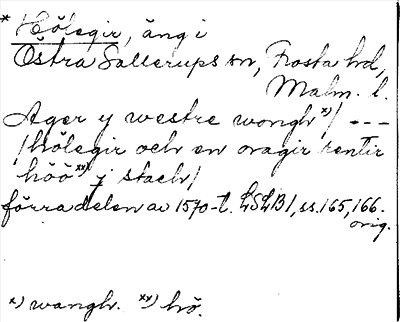 * Hölegir, äng i
Östra Sallerups sn, Frosta hd,
Malm. l.
Ager y westre wongh x) / ---
/ hölegir och en oragir rentir
höö xx) y stach /
förra delen av 1570-t. LSLB 1, ss. 165, 166.
orig.
x) wangh. xx) hö.